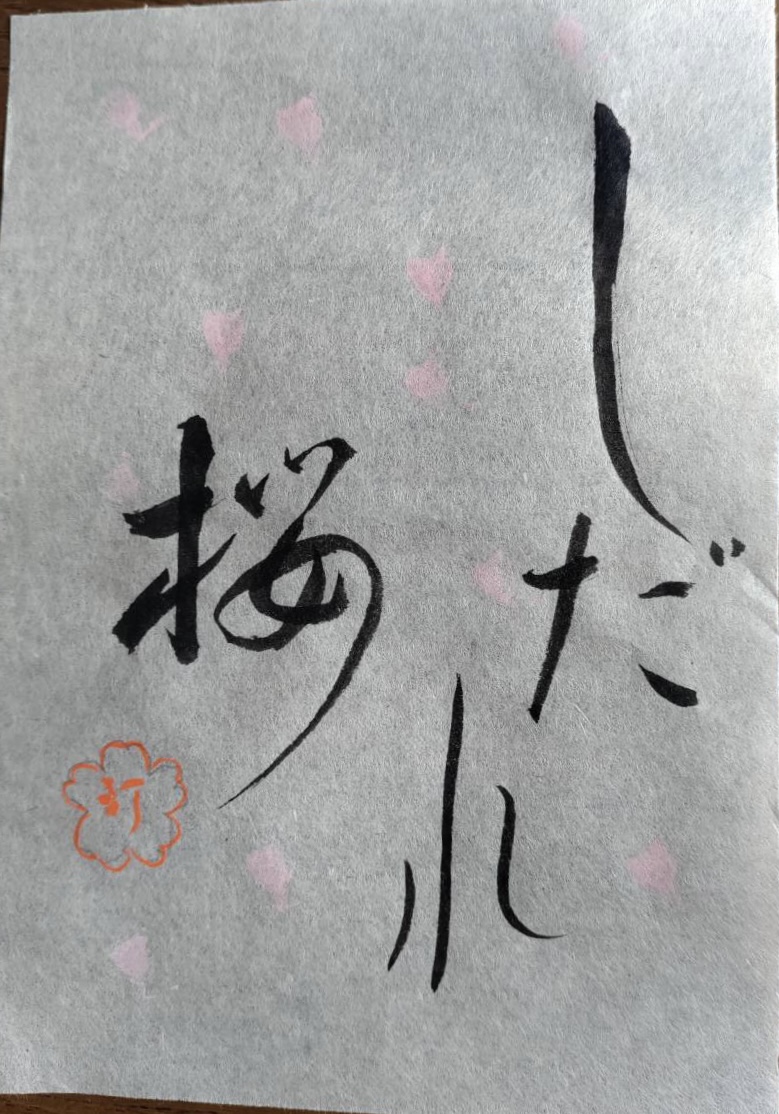 しだれ
桜